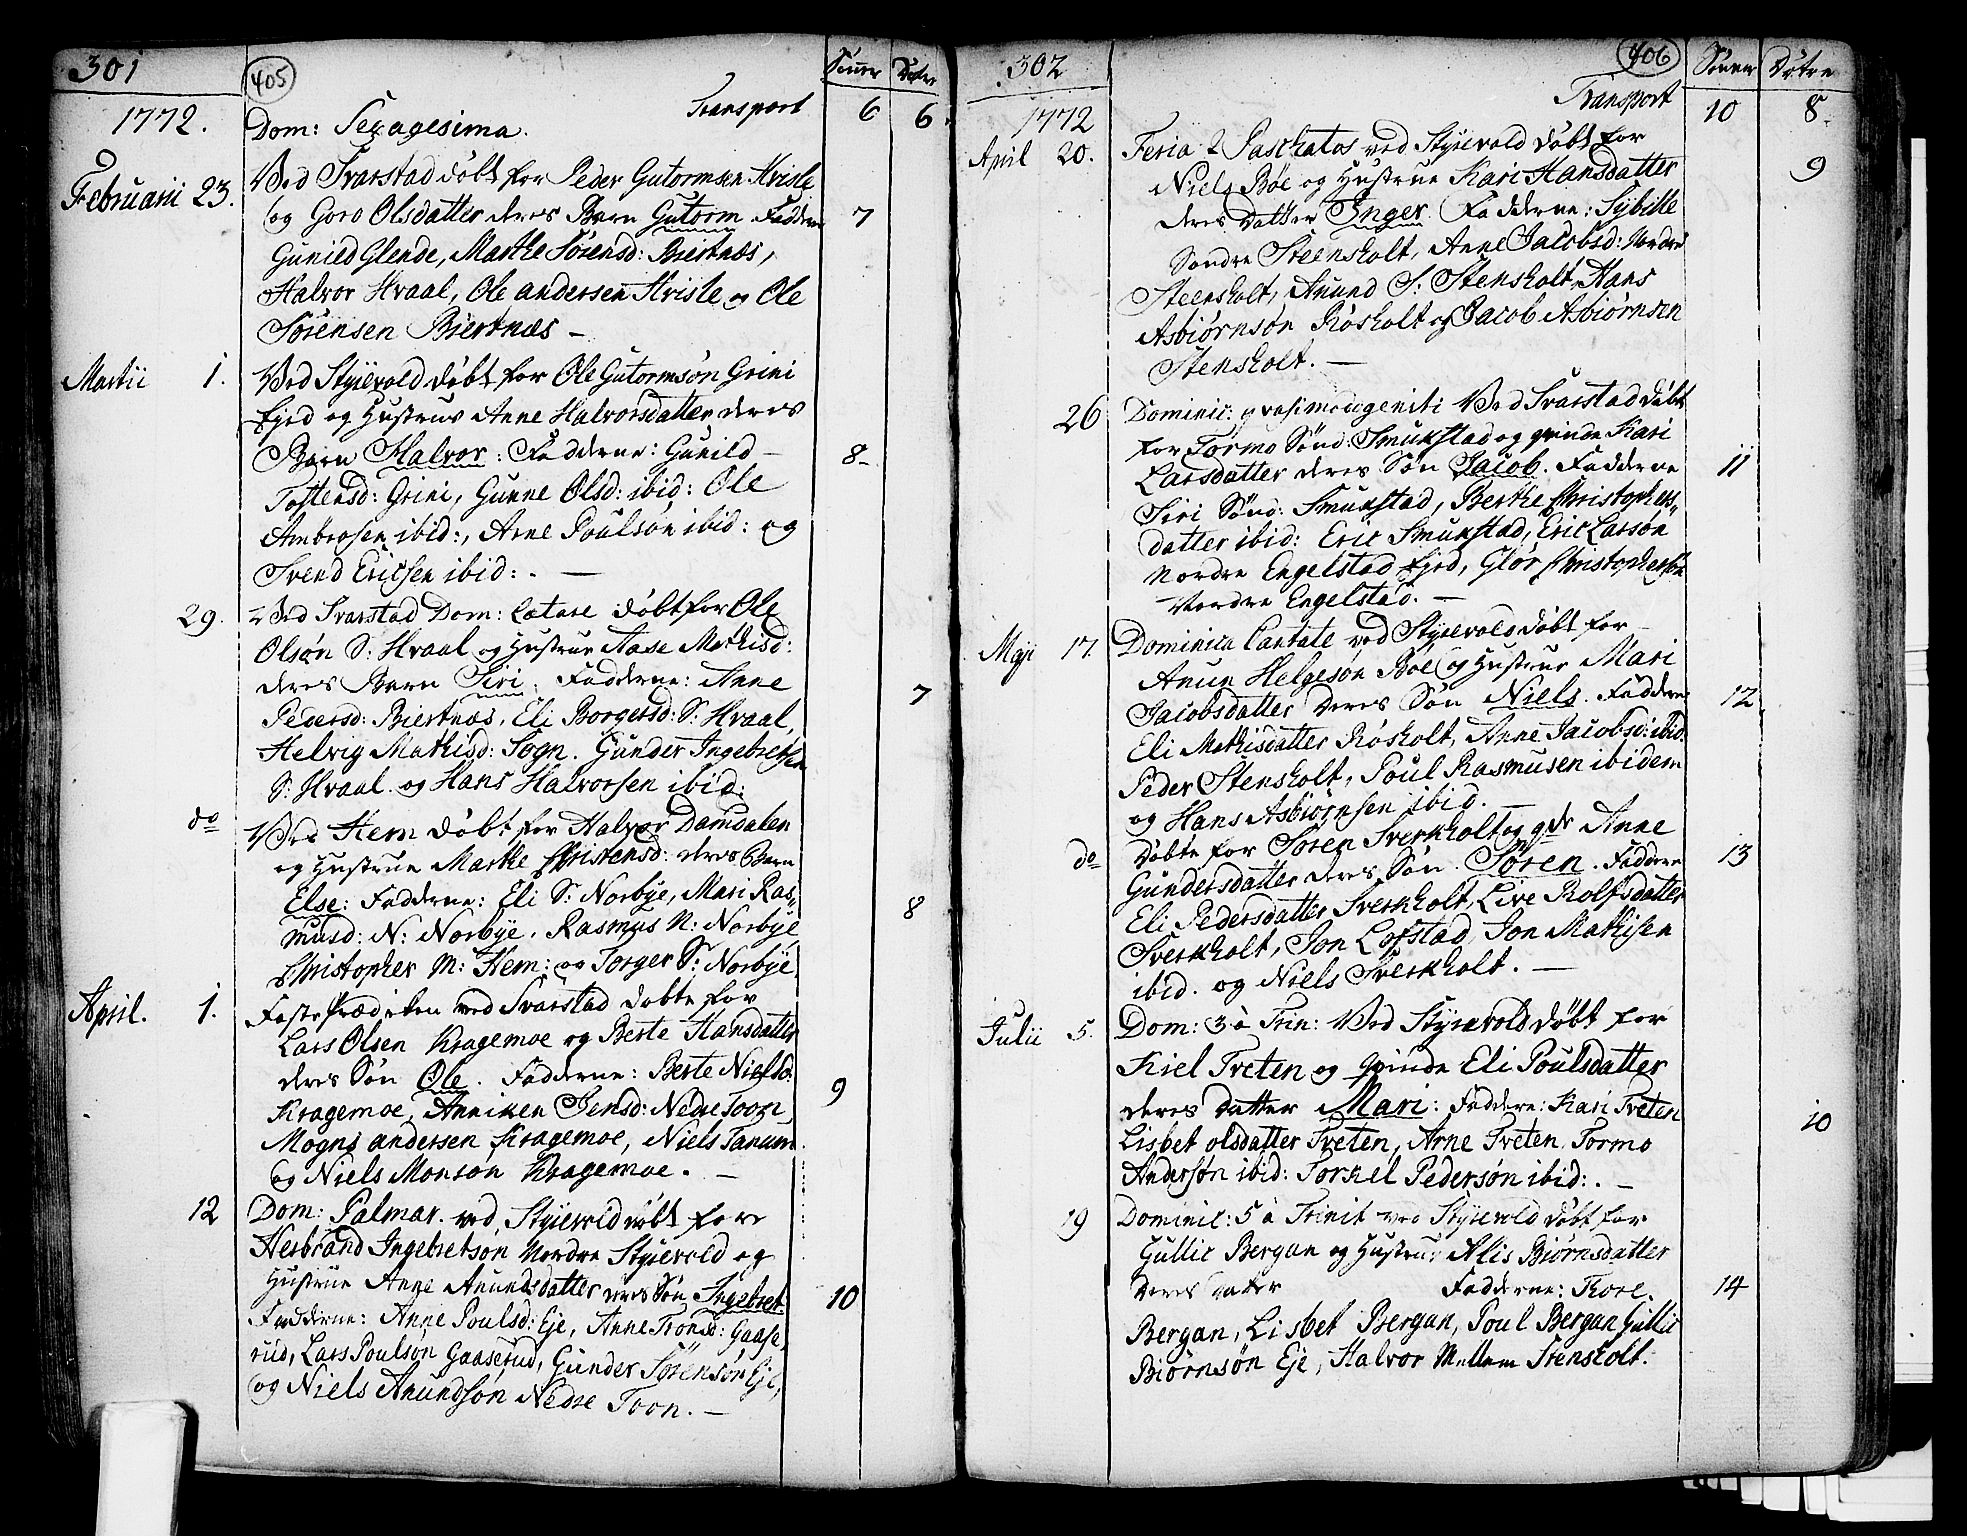 301
405
Sönner
Døtre
1772.
Transport 6 6.
Dom: Sexagesima.
Februarii 23. Ved Svarstad døbt for Peder Gutormsen Hvisle
og Goro Olsdatter deres Barn Gutorm. Faddere 7
Gunild Glende, Marthe Sörensd: Biertnæs,
Halvor Hvaal, Ole andersen Hvisle og Ole
Sörensen Biertnæs –
Martii 1. Ved Styrevold døbt for Ole Gutormsön Grini
Ejed og Hustrue Anne Halvorsdatter deres
Barn Halvor: Fadderne: Gunild – 8-
Tostensd: Grini, Gunne Olsd: ibid: Ole
Ambrosen ibid:, Arne Poulsön ibid: og
Svend Ericsen ibid:. —
29. Ved Svarstad Dom: Lætare döbt for Ole
Olsön S: Hvaal og Hustrue Aase Mathisd:
deres Barn Siri. Fadderne: Anne
7
Pedersd: Biertnæs, Eli Borgersd: S: Hvaal,
Helvig Mathisd: Sogn. Gunder Ingebretsen
S: Hvaal og Hans Halvorsen ibid:
do Ved Hem döbt for Halvor Damdalen
og Hustrue Marthe Christensd: deres Barn
Else: Fadderne: Eli S: Norbye, Mari Ras- 8
musd: N: Norbye, Rasmus N: Norbye
Christopher M: Hem: og Torger S: Norbye
April. 1. Faste Prædiken ved Svarstad döbte for
Lars Olsen Kragemoe og Berte Hansdatter
deres Sön Ole. Fadderne: Berte Nielsd: 9
Kragemoe, Anniken Jensd: Nedre Toon,
Mogns andersen Kragemoe, Niels Tanum
og Niels Monson Kragemoe. —
12 Dom: Palmar. ved Styrevold döbt for
Herbrand Ingebretsön Nordre Styrevold og
Hustrue Anne Anundsdatter deres Sön Ingebret 10
Fadderne: Anne Poulsd: Eje, Anne Tronsd: Gaase,
rud, Lars Poulsön Gaaserud, Gunder Sörensön Eje,
og Niels Anundsön Nedre Toon. —
302
406
Sönner
Døtre
1772
Transport 10 8.
April 20. Feria 2 Paschatos ved Styrevold döbt for
Niels Böe og Hustrue Kari Hansdatter 9
deres Datter Inger. Fadderne: Sybille
Söndre Steensholt, Anne Jacobsd: Nordre
Steensholt, Anund S: Stensholt, Hans
Asbiörnsön Rösholt og Jacob Asbiörnsen
Stensholt. —
26 Dominic: qvasimodogeniti Ved Svarstad döbt
for Tormo Sönd: Smukstad og qvinde Kari
Larsdatter deres Sön Jacob. Fadderne 11
Siri Sönd: Smukstad, Berthe Christophers-
datter ibid: Eric Smukstad, Eric Larsön
Nordre Engelstad Ejed, Glör Christophersön
Nordre Engelstad. —
Maji 17. Dominica Cantate ved Styrevold döbt for
Anun Helgesön Boe og Hustrue Mari
Jacobsdatter deres Sön Niels. Faddere 12
Eli Mathisdatter Rösholt, Anne Jacobsd: ibid:
Peder Stensholt, Poul Rasmusen ibidem
og Hans Asbiörnsen ibid. —
do Döbte for Sören Sverkholt og qde Anne
Gundersdatter deres Sön. Sören. Faddere 13
Eli Pedersdatter Sverkholt, Live Rolfsdatter
Sverkholt, Jon Lofstad, Jon Mathisen
ibid. og Niels Sverkholt. —
Julii 5. Dom: 3 à Trin: Ved Styrevold döbt for
Kiel Tveten og Qvinde Eli Poulsdatter
deres Datter Mari: Faddere: Kari Tveten 10
Lisbet olsdatter Tveten, Arne Tveten, Tormo
Andersön ibid: Torkel Pedersön ibid:. —
19 Dominic: 5 à Trinit ved Styrevold döbt for
Gullic Bergan og Hustrue Alis Biörnsdatter
deres Datter Fadderne: Thore. 14
Bergan, Lisbet Bergan, Poul Bergan Gullic
Biörnsön Eje, Halvor Mellem Stensholt.